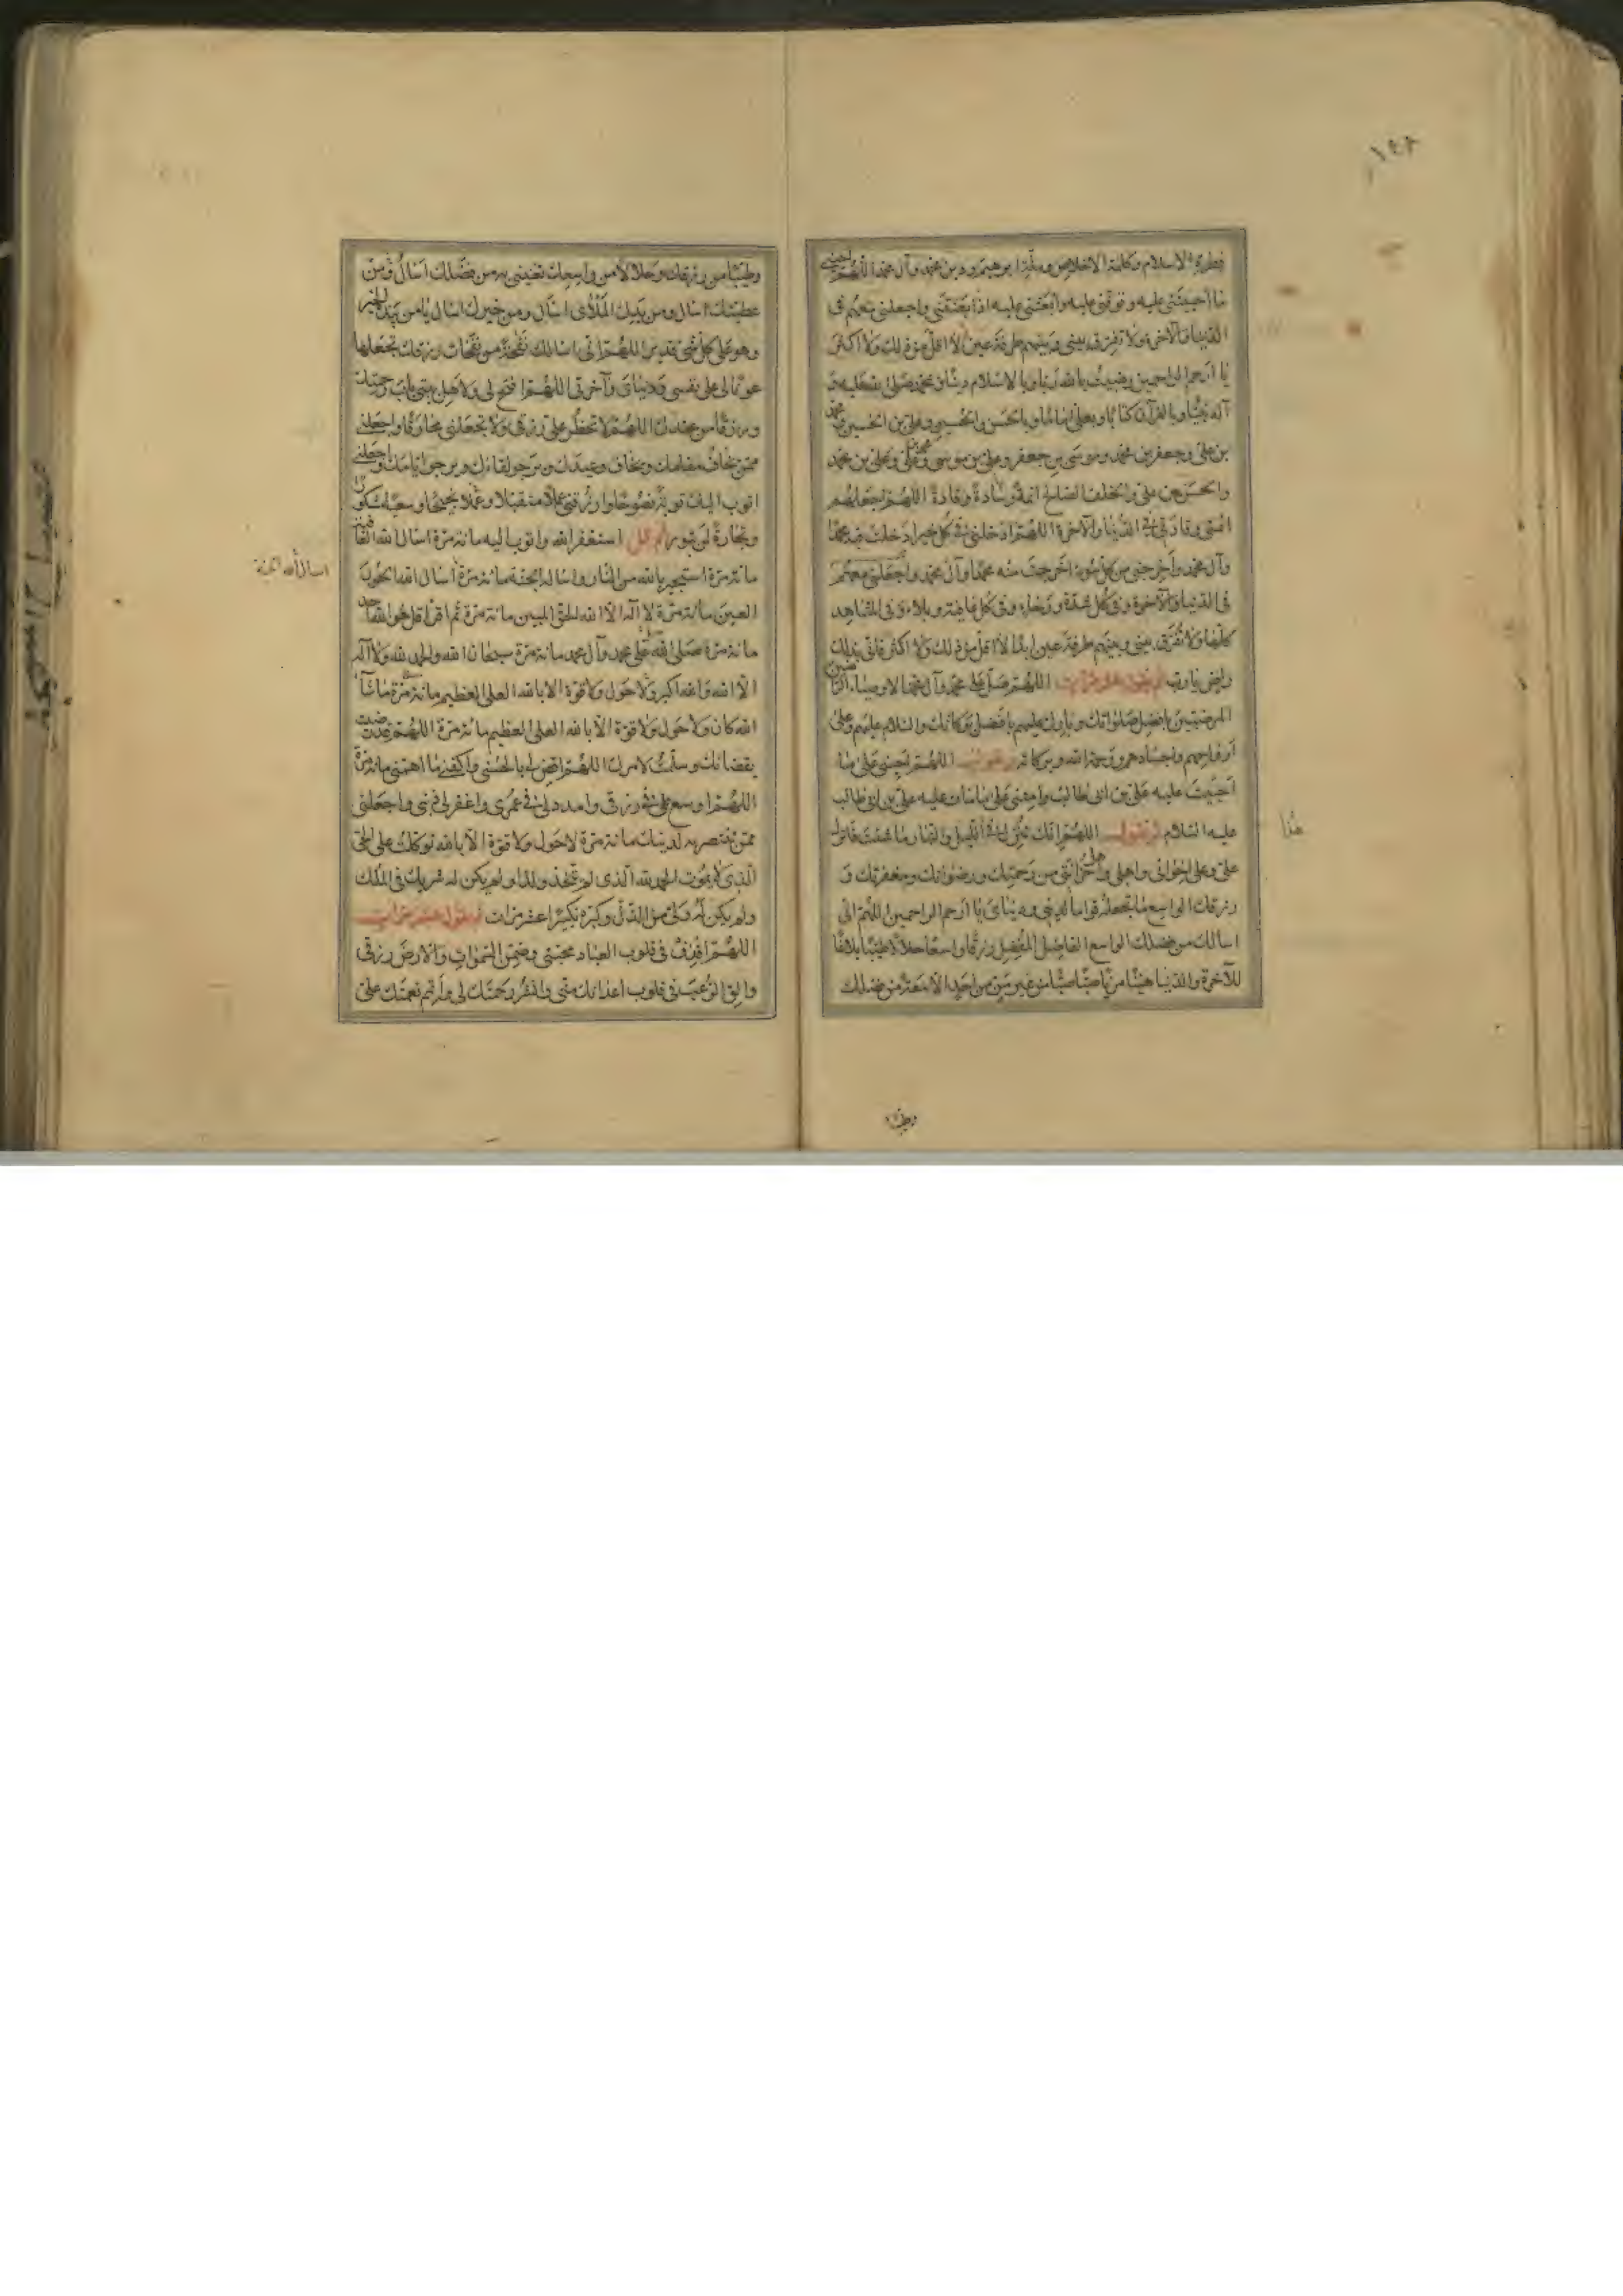 ١٤٢
فطرة الاسلام وكلمة الاخلاص وملة ابرهيم ودين محمد وآل محمد اللهم احينى
ما احييتنى عليه وتوفنى عليه وابعثنى عليه اذا بعثتنى واجعلنى معهم فى
الدنيا والآخرة ولا تفرق بينى وبينهم طرفة عين لا اقل من ذلك ولا اكثر
يا ارحم الراحمين رضيت بالله ربا وبالاسلام دينا وبمحمد صلى الله عليه و
آله نبيا وبالقرآن كتابا وبعلى اماما وبالحسن والحسين وعلى بن الحسين ومحمد
بن على وجعفر بن محمد وموسى بن جعفر وعلى بن موسى ومحمد بن على وعلى بن محمد
والحسن بن على والخلف الصالح ائمة وسادة وقادة اللهم اجعلهم
ائمتى وقادتى فى الدنيا والآخرة اللهم ادخلنى فى كل خير ادخلت فيه محمدا
وآل محمد واخرجنى من كل سوء اخرجت منه محمدا وآل محمد واجعلنى معهم
فى الدنيا والآخرة وفى كل شدة ورخاء وفى كل عافية وبلاء وفى المشاهد
كلها ولا تفرق بينى وبينهم طرفة عين ابدا لا اقل من ذلك ولا اكثر فانى بذلك
راض يا رب ثم يقول عشر مرات اللهم صل على محمد وآل محمد الاوصياء الراضين
المرضيين بافضل صلواتك وبارك عليهم بافضل بركاتك والسلام عليهم وعلى
ارواحهم واجسادهم ورحمة الله وبركاته اللهم احينى على ما
احييت عليه على بن ابى طالب وامتنى على ما مات عليه على بن ابى طالب
عليه السلام ثم تقول اللهم انك تنزل فى الليل والنهار ما شئت فانزل
هذا
على وعلى اخوانى واهلى واهل حزانتى من رحمتك ورضوانك ومغفرتك و
رزقك الواسع ما تجعله قواما لدينى ودنياى يا ارحم الراحمين اللهم انى
اسالك من فضلك الواسع الفاضل المفضل رزقا واسعا حلالا طيبا بلاغا
للآخرة والدنيا هنيئا مريئا صبا صبا من غير من من احد الا سعة من فضلك
وطيبا
وطيبا من رزقك وحلالا من واسعك تغنينى به من فضلك اسال ومن
عطيتك اسال ومن يدك الملأى اسال ومن خيرك اسال يا من بيده الخير
وهو على كل شىء قدير اللهم انى اسالك نفحة من نفحات رزقك تجعلها
عونا لى على نفسى ودنياى وآخرتى اللهم افتح لى ولاهل بيتى باب رحمتك
ورزقا من عندك اللهم لا تحظر على رزقى ولا تجعلنى محارفا واجعلنى
ممن يخاف مقامك ويخاف وعيدك ويرجو لقاءك ويرجو ايامك واجعلنى
اتوب اليك توبة نصوحا وارزقنى عملا متقبلا وعملا نجيحا وسعيا مشكورا
وتجارة لن تبور ثم قل استغفر الله واتوب اليه مائة مرة اسال الله العافية
مائة مرة استجير بالله من النار واساله الجنة مائة مرة اسال الله الحور
اسال الله الجنة
العين مائة مرة لا اله الا الله الملك الحق المبين مائة مرة ثم اقرا قل هو الله احد
مائة مرة صلى الله على محمد وآل محمد مائة مرة سبحان الله والحمد لله ولا اله
الا الله والله اكبر ولا حول ولا قوة الا بالله العلى العظيم مائة مرة ما شاء
الله كان ولا حول ولا قوة الا بالله العلى العظيم مائة مرة اللهم قد رضيت
بقضائك وسلمت لامرك اللهم اقض لى بالحسنى واكفنى ما اهمنى مائة مرة
اللهم اوسع على فى رزقى وامدد لى فى عمرى واغفر لى ذنبى واجعلنى
ممن تنتصر به لدينك مائة مرة لا حول ولا قوة الا بالله توكلت على الحى
الذى لا يموت الحمد لله الذى لم يتخذ ولدا ولم يكن له شريك فى الملك
ولم يكن له ولى من الذل وكبره تكبيرا عشر مرات ثم يقول عشر مرات
اللهم اقذف فى قلوب العباد محبتى وضمن السموات والارض رزقى
والق الرعب فى قلوب اعدائك منى وانشر رحمتك لى واتمم نعمتك على